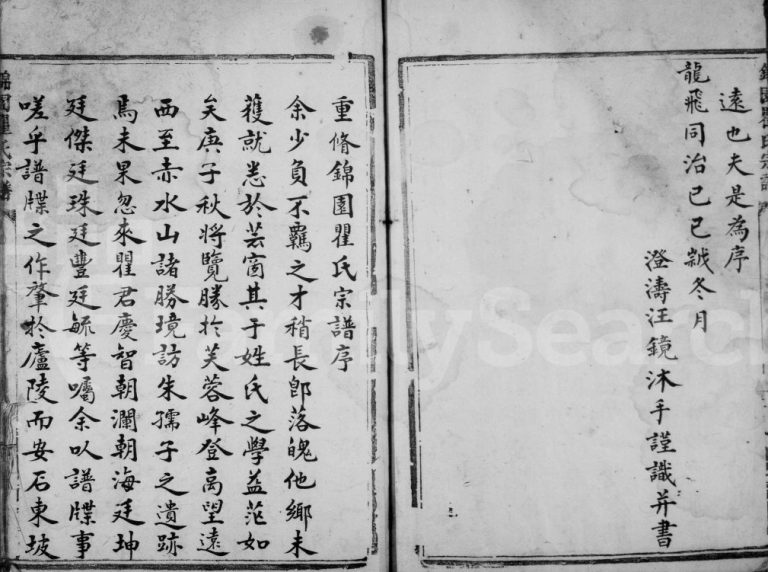 遠也夫是為序
龍飛同治己巳戠冬月
澄濤汪鏡沐手謹識并書
重脩錦園瞿氏宗譜序
余少負不羈之才稍長卽落魄他鄉未
獲就悉於芸窗其于姓氏之學益茫如
矣庚子秋將覽勝於芙蓉峰登高望遠
西至赤水山諸勝境訪朱孺子之遺跡
焉未果忽來瞿君慶智朝瀾朝海廷坤
廷傑廷珠廷豐廷毓等囑余以譜牒事
嗟乎譜牒之作肇於廬陵而安石東坡
錦園瞿氏宗譜
FamilySearch